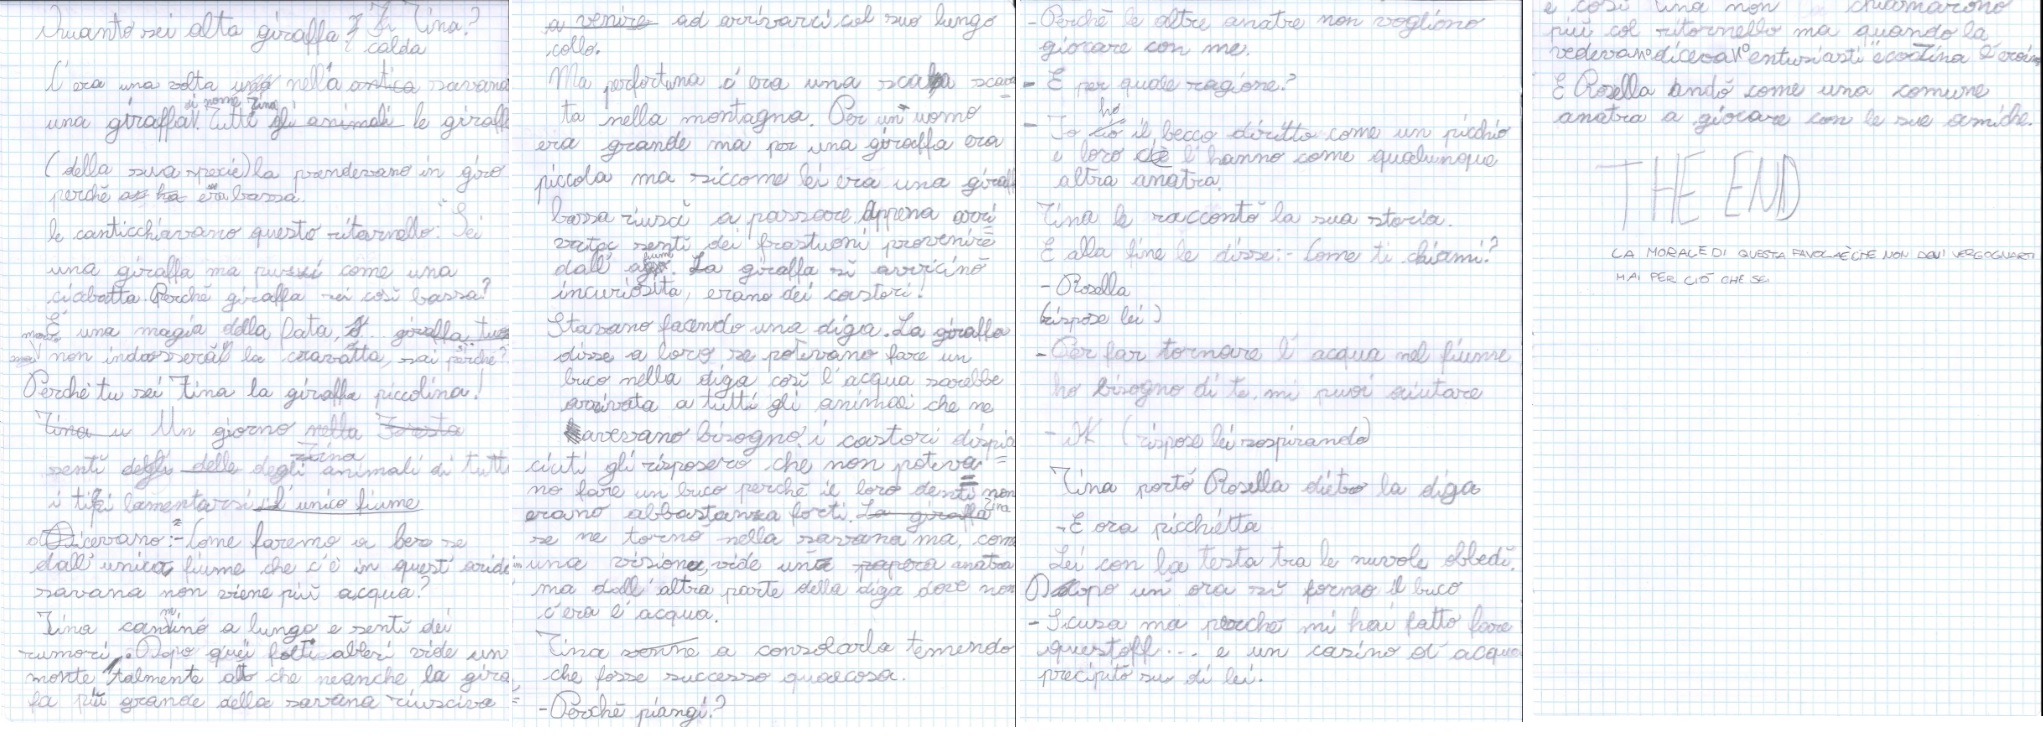 Quanto sei alta giraffa Tina?
calda
C'era una volta nella antica savana
una giraffa di nome Tina. Tutti gli animali le giraffe
(della sua specie) la prendevano in giro
perché era bassa.
le canticchiavano questo ritornello: "Sei
una giraffa ma pussi come una
ciabatta. Perché giraffa sei così bassa?
È una magia della fata,
non indosserai la cravatta, sai perché?
Perché tu sei Tina la giraffa piccolina!
Tina u Un giorno nella Foresta
Tina
sentì degli delle degli animali di tutti
i tipi lamentarsi l'unico fiume
dicevano:-Come faremo a bere se
dall'unico fiume che c'è in questa arida
savana non viene più acqua?
Tina camminò a lungo e sentì dei
rumori. Dopo quei folti alberi vide un
monte talmente alto che neanche la gira
fa più grande della savana riusciva
a venire ad arrivarci col suo lungo
collo.
Ma perfortuna c'era una scava
ta nella montagna. Per un uomo
era grande ma per una giraffa era
piccola ma siccome lei era una giraf
bassa riuscì a passare. Appena arri
vata sentì dei frastuoni provenire
dall' fiume. La giraffa si avvicinò
incuriosita, erano dei castori!
Stavano facendo una diga. La giraffa
disse a loro se potevano fare un
buco nella diga così l'acqua sarebbe
arrivata a tutti gli animali che ne
avevano bisogno, i castori dispia
ciuti gli risposero che non poteva=
no fare un buco perché il loro denti non
erano abbastanza forti. La giraffa Tina
se ne tornò nella savana ma, come
una visione, vide una papera anatra
ma dall'altra parte della diga dove non
c'era l'acqua.
Tina venne a consolarla temendo
che fosse successo qualcosa.
-Perché piangi?
-Perché le altre anatre non vogliono
giocare con me.
- E per quale ragione?
- Io ho il becco diritto come un picchio
e loro l'hanno come qualunque
altra anatra.
Tina le raccontò la sua storia.
E alla fine le disse:- Come ti chiami?
- Rosella
(rispose lei)
-Per far tornare l'acqua nel fiume
ho bisogno di te, mi puoi aiutare
- OK (rispose lei sospirando)
Tina portò Rosella dietro la diga
-E ora picchietta
Lei con la testa tra le nuvole obbedì.
Dopo un ora si formo il buco
-Scusa ma perché mi hai fatto fare
questoff... e un casino di acqua
precipitò su di lei.
e così Tina non la chiamarono
più col ritornello ma quando la
vedevano dicevano entusiasti "ecco Tina l'eroina
E Rosella andò come una comune
anatra a giocare con le sue amiche.
THE END
LA MORALE DI QUESTA FAVOLA È CHE NON DEVI VERGOGNARTI
MAI PER CIÒ CHE SEI